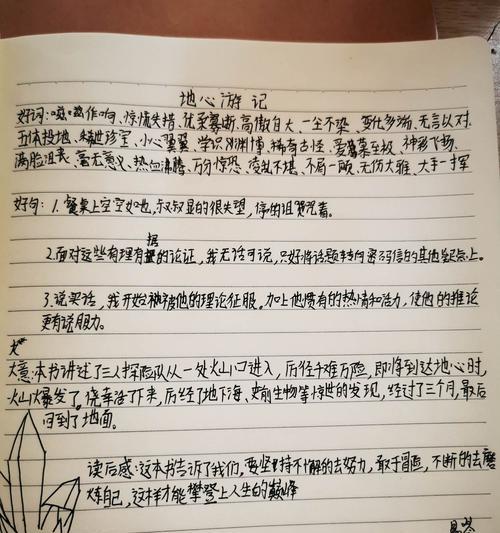 地心游记
好词:嗞嗞作响、惊慌失措、优柔寡断、高傲自大、一尘不染、变化多端、无言以对、
五体投地、稀世珍宝、小心翼翼、学识渊博、稀奇古怪、爱慕至极、神彩飞扬、
满脸沮丧、毫无意义、热血沸腾、万分惊恐、凌乱不堪、不屑一顾、无伤大雅、大手一挥
好句:1.餐桌上空空如也,叔叔显的很失望,
2.面对这些有理有据的论证,我无话可说,只好将话题转向密码信的其他疑点上。
3.说实话,我开始被他的理论征服。加上他惯有的热情和活力,使他的推论
更有说服力。
大意:本书讲述了三人探险队从一处火山口进入,历经千难万险,即将到达地心时,
火山爆发了。侥幸活了下来,历经了地下海、史前生物等惊世的发现,经过了三个月,最后
回到了地面。
读后感:这本书告诉了我们,要坚持不懈的去努力,敢于冒险,不断的去磨
炼自己,这样才能攀登上人生的巅峰